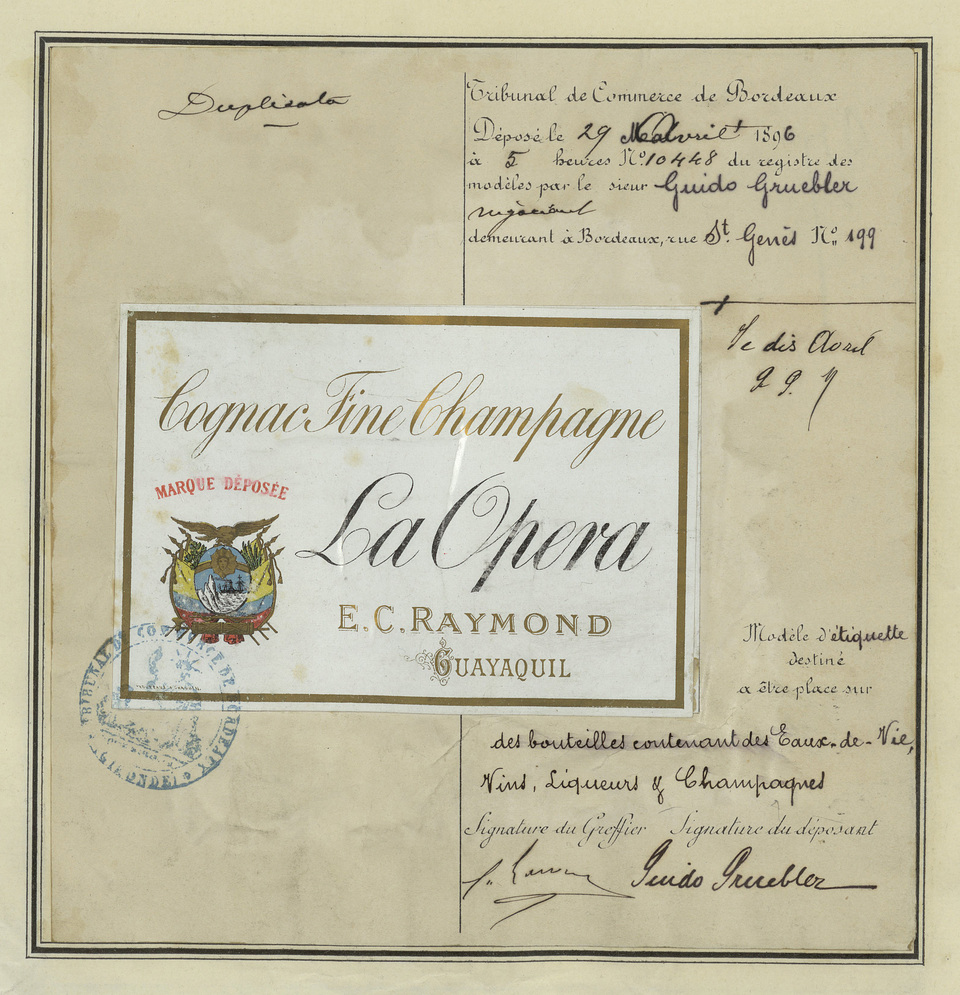 Duplicata
Tribunal de Commerce de Bordeaux
Déposé le 29 Avril 1896
à 5 heures N° 10448 du registre des
modèles par le sieur Guido Gruebler
négociant
demeurant à Bordeaux, rue St. Genès N° 199
Je dis Avril
Cognac Fine Champagne
MARQUE DÉPOSÉE
La Opera
E. C. RAYMOND
GUAYAQUIL
TRIBUNAL DE COMMERCE DE BORDEAUX
(GIRONDE)
Modèle d'étiquette
destiné
a être place sur
des bouteilles contenant des Eaux-de-Vie,
Vins, Liqueurs & Champagnes
Signature du Greffier Signature du déposant
Guido Gruebler